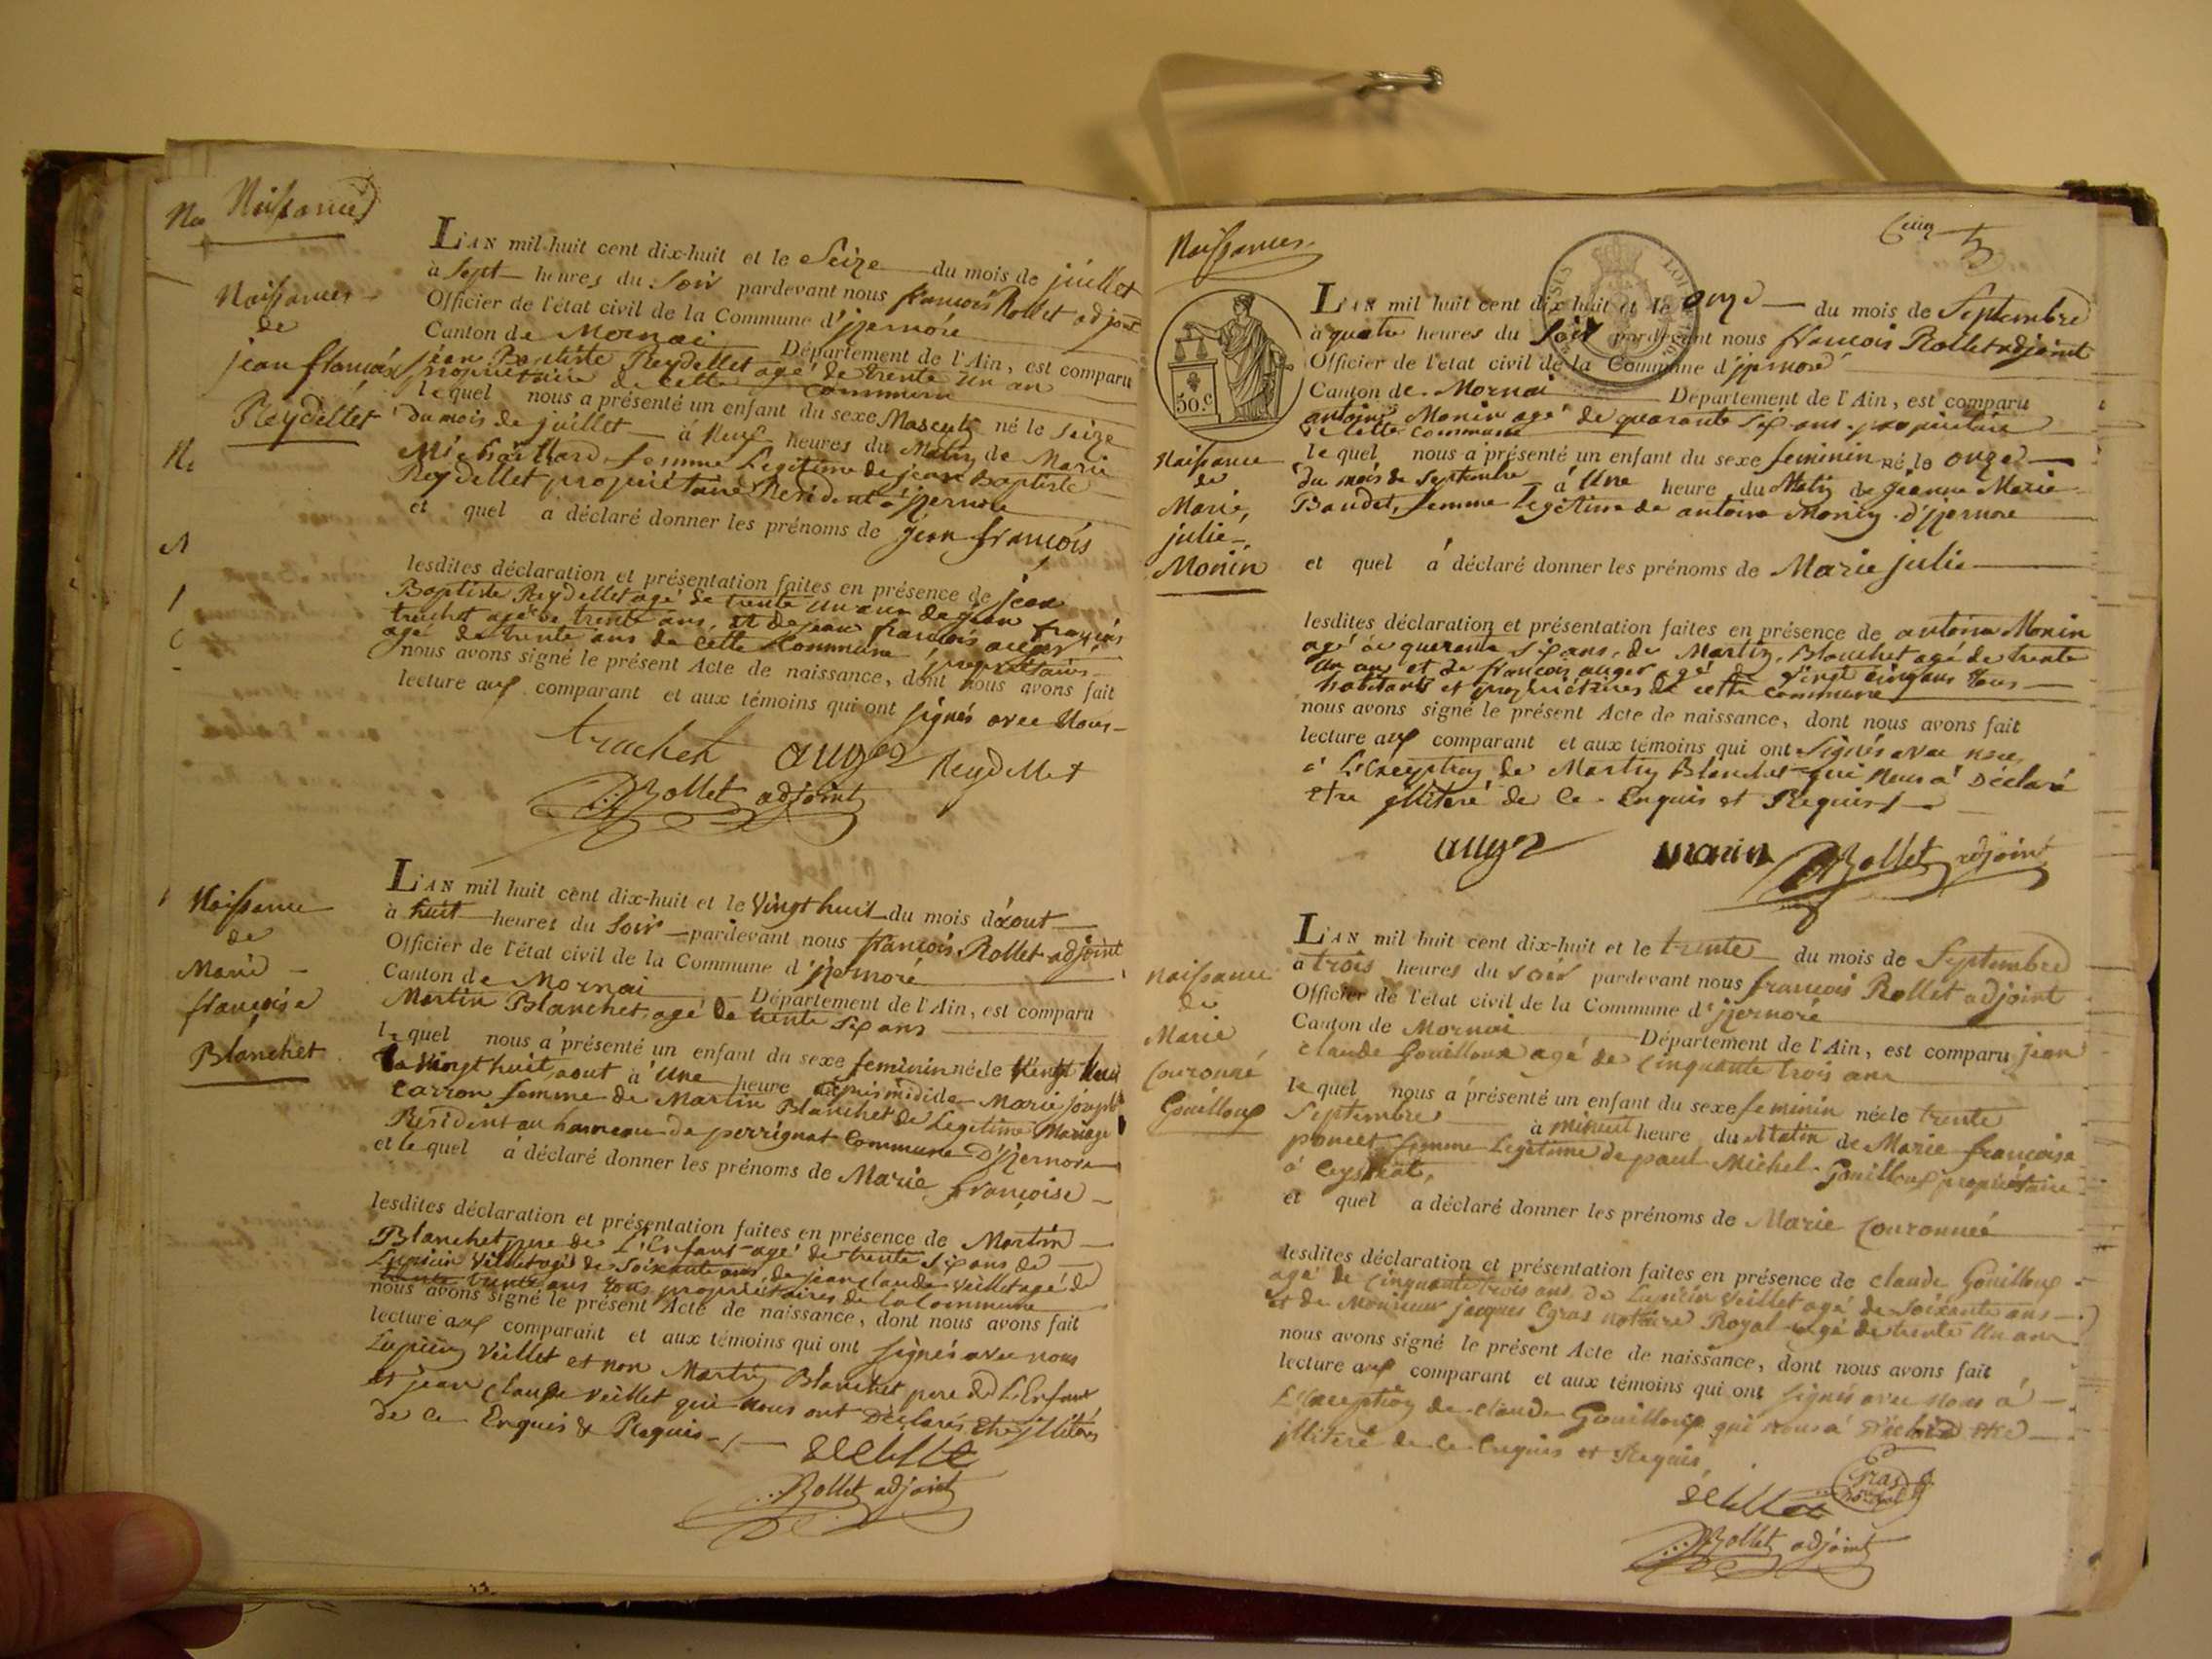 Naissances
Naissances
de
jean françois
Reydellet
L'AN mil huit cent dix-huit et le Seize du mois de juillet
à Sept heures du Soir pardevant nous françois Rollet adjoint
Officier de l'état civil de la Commune d'jzernore
Canton de Mornai Département de l'Ain, est comparu
jean Baptiste Reydellet agé de trente un an
propriétaire de cette Commune
lequel nous a présenté un enfant du sexe Masculin né le Seize
du mois de juillet à Neuf heures du Matin de Marie
Michaillard femme Légitime de jean Baptiste
Reydellet propriétaire Résident à jzernore
et quel a déclaré donner les prénoms de jean françois
lesdites déclaration et présentation faites en présence de jean
Baptiste Reydellet agé de trente un an de jean françois
truchet agé de trente ans, et de jean françois auger
agé de trente ans de cette Commune propriétaires
nous avons signé le présent Acte de naissance, dont nous avons fait
lecture aux comparant et aux témoins qui ont signés avec Nous
truchet auger Reydellet
Rollet adjoint
Naissance
de
Marie
françoise
Blanchet
L'AN mil huit cent dix-huit et le Vingt huit du mois d'aout
à huit heures du Soir pardevant nous françois Rollet adjoint
Officier de l'état civil de la Commune d'jzernore
Canton de Mornai Département de l'Ain, est comparu
Martin Blanchet agé de trente six ans
lequel nous à présenté un enfant du sexe feminin née le Vingt huit
Vingt huit aout à Une heure après midi de Marie josephe
Carron femme de Martin Blanchet de Legitime Mariage
Résident au hameau de perrignat Commune D'jzernore
et le quel à déclaré donner les prénoms de Marie françoise
lesdites déclaration et présentation faites en présence de Martin
Blanchet pere de L'Enfant agé de trente six ans de
Lupicin Veillet agé de Soixante ans, de jean claude Veillet agé de
trente ans tous propriétaires de la Commune
nous avons signé le présent Acte de naissance, dont nous avons fait
lecture aux comparant et aux témoins qui ont signés avec nous
Lupicin Veillet et non Martin Blanchet pere de L'Enfant
et jean claude Veillet qui nous ont Déclarés Etre jlliterés
de ce Enquis & Requis
Rollet adjoint
Naissances
Cinq 5
50.c
Naissance
de
Marie
julie
Monin
L'AN mil huit cent dix huit et le onze du mois de Septembre
à quatre heures du Soir pardevant nous françois Rollet adjoint
Officier de l'etat civil de la Commune d'jzernore
Canton de Mornai Département de l'Ain, est comparu
antoine Monin agé de quarante six ans propriétaire
de cette Commune
lequel nous a présenté un enfant du sexe feminin né le onze
du mois de Septembre à Une heure du Matin de jeanne Marie
Baudet, femme legitime de antoine Monin d'jzernore
et quel à déclaré donner les prénoms de Marie julie
lesdites déclaration et présentation faites en présence de antoine Monin
agé de quarante six ans, de Martin Blanchet agé de trente
un an et de françois auger agé de vingt cinq ans tous
habitants et propriétaires de cette commune
nous avons signé le présent Acte de naissance, dont nous avons fait
lecture aux comparant et aux témoins qui ont signés avec nous
à L'Exception de Martin Blanchet qui nous à Déclaré
etre jlliteré de ce Enquis et Requis
auger monin Rollet adjoint
Naissance
de
Marie
Couronné
Gouilloux
L'AN mil huit cent dix-huit et le trente du mois de Septembre
à trois heures du soir pardevant nous françois Rollet adjoint
Officier de l'etat civil de la Commune d'jzernore
Canton de Mornai Département de l'Ain, est comparu jean
claude Gouilloux agé de Cinquante trois ans
lequel nous à présenté un enfant du sexe feminin née le trente
Septembre à minuit heure du Matin de Marie françoise
poncet femme Legitime de paul Michel Gouilloux propriétaire
à Ceyssiat,
et quel a déclaré donner les prénoms de Marie Couronneé
lesdites déclaration et présentation faites en présence de claude Gouilloux
agé de Cinquante trois ans de Lupicin Veillet agé de Soixante ans
et de Monsieur jacques Gras notaire Royal agé de trente un ans
nous avons signé le présent Acte de naissance, dont nous avons fait
lecture aux comparant et aux témoins qui ont signés avec Nous à
L'Exception de claude Gouilloux qui nous à Déclaré etre
jlliteré de ce Enquis et Requis
Gras
Rollet adjoint